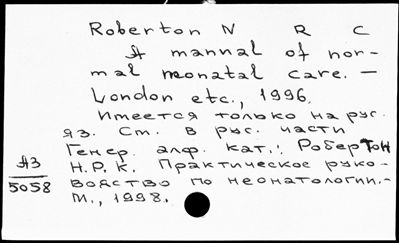 Roberton N R C
A mannal of nor-
mal neonatal care. –
London etc., 1996.
Имеется только на рус.
яз. См. в рус. части
Генер. алф. кат.: Робертон
Н.Р.К. Практическое руко-
водство по неонатологии.-
М., 1998.
А3
5058